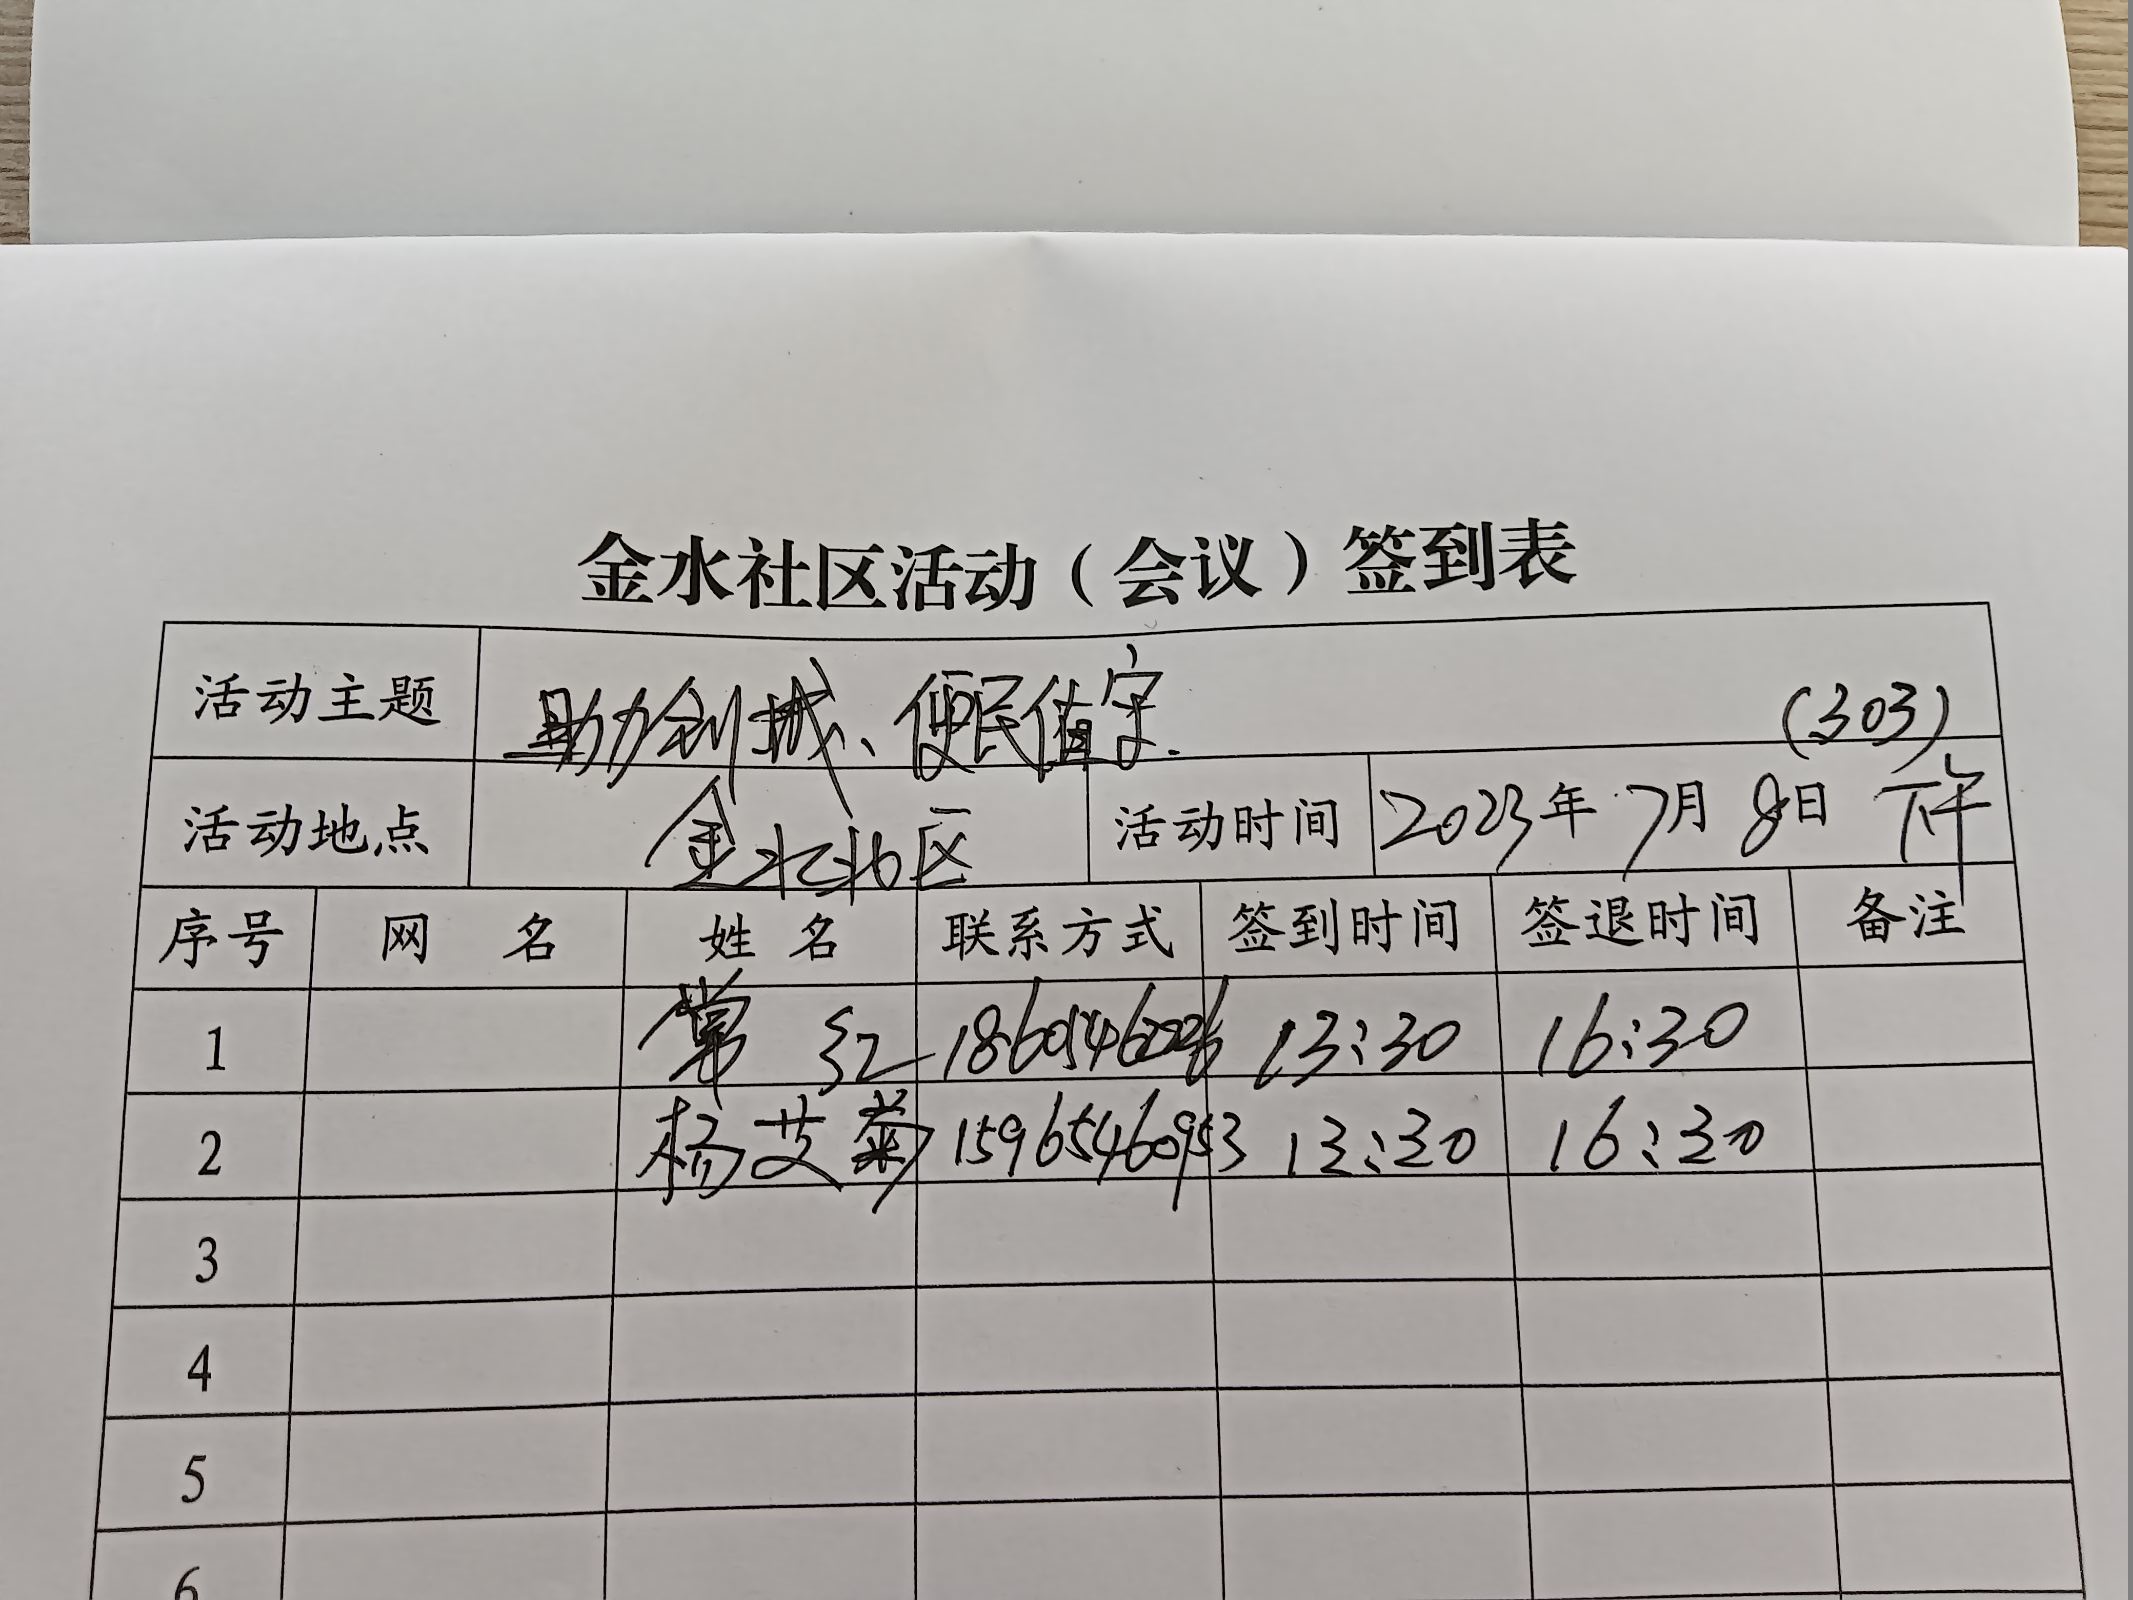 金水社区活动（会议）签到表
活动主题 助力创城、便民值守. (303)
活动地点 金水北区 活动时间 2023年7月8日 下午
序号 网名 姓名 联系方式 签到时间 签退时间 备注
1 常红 13:30 16:30
2 杨艾菊 15965460953 13:30 16:30
3
4
5
6